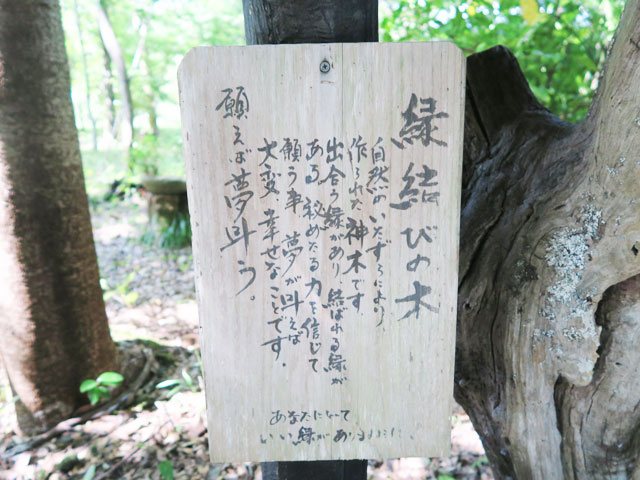 縁結びの木
自然のいたずらにより
作られた神木です。
出合う縁があり、結ばれる縁が
ある。秘めたる力を信じて
願う事、夢が叶えば
大変、幸せなことです。
願えば夢叶う。
あなたになって
いい縁があります